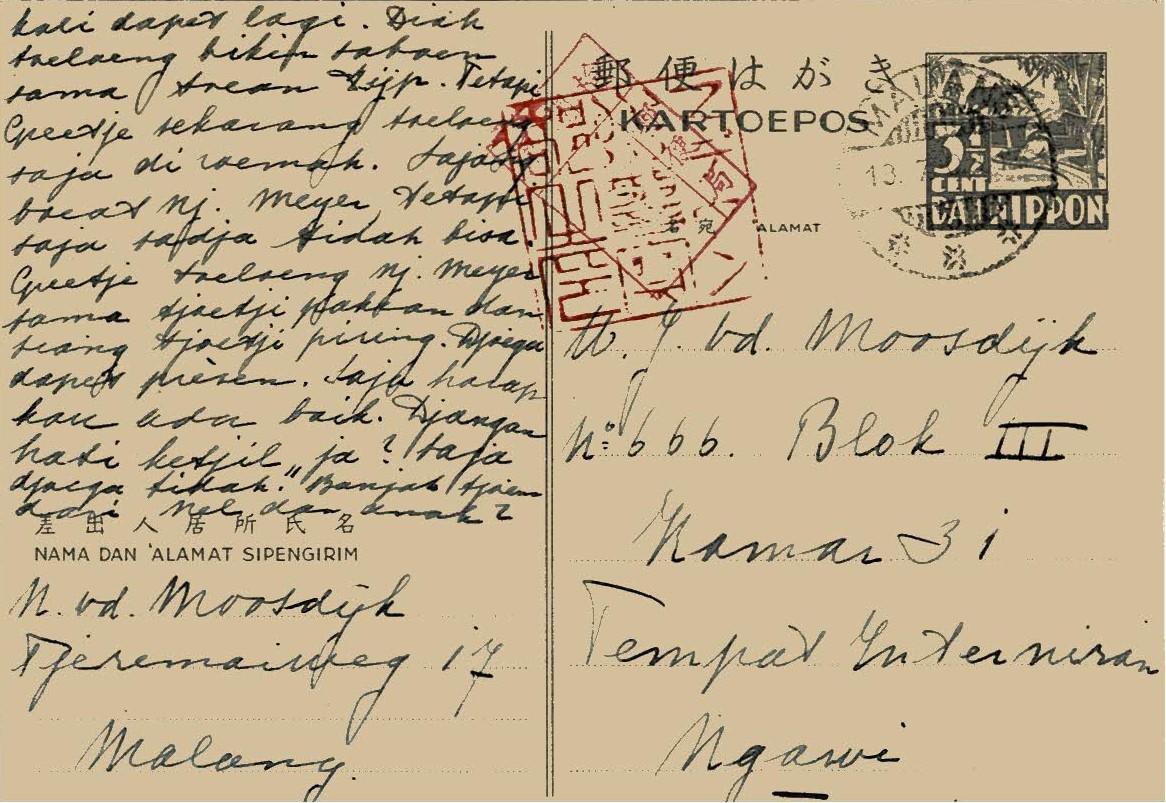 kali dapet lagi. Diah
toeloeng bikin saboen
sama toean Zijp. Tetapi
Greetje sekarang toeloeng
saja di roemah. Sajang
boeat Nj. Meyer, tetapi
saja sadja tidah bisa.
Greetje toeloeng Nj. Meyer
sama tjoetji pakean dan
siang tjoetji piring. Djoega
dapet presen. Saja harap
kou ada baik. Djangan
hati ketjil, ja? Saja
djoega tidah. Banjak tjioem
dari Nel dan anak2
差出人居所氏名
NAMA DAN 'ALAMAT SIPENGIRIM
N. vd. Moosdijk
Tjeremaiweg 17
Malang.
郵便はがき
KARTOEPOS
名宛 'ALAMAT
MALANG
13. 7
3 1/2
CENT
DAI NIPPON
郵便局
W. J. vd. Moosdijk
No: 666. Blok III
Kamar 31
Tempat Interniran
Ngawi